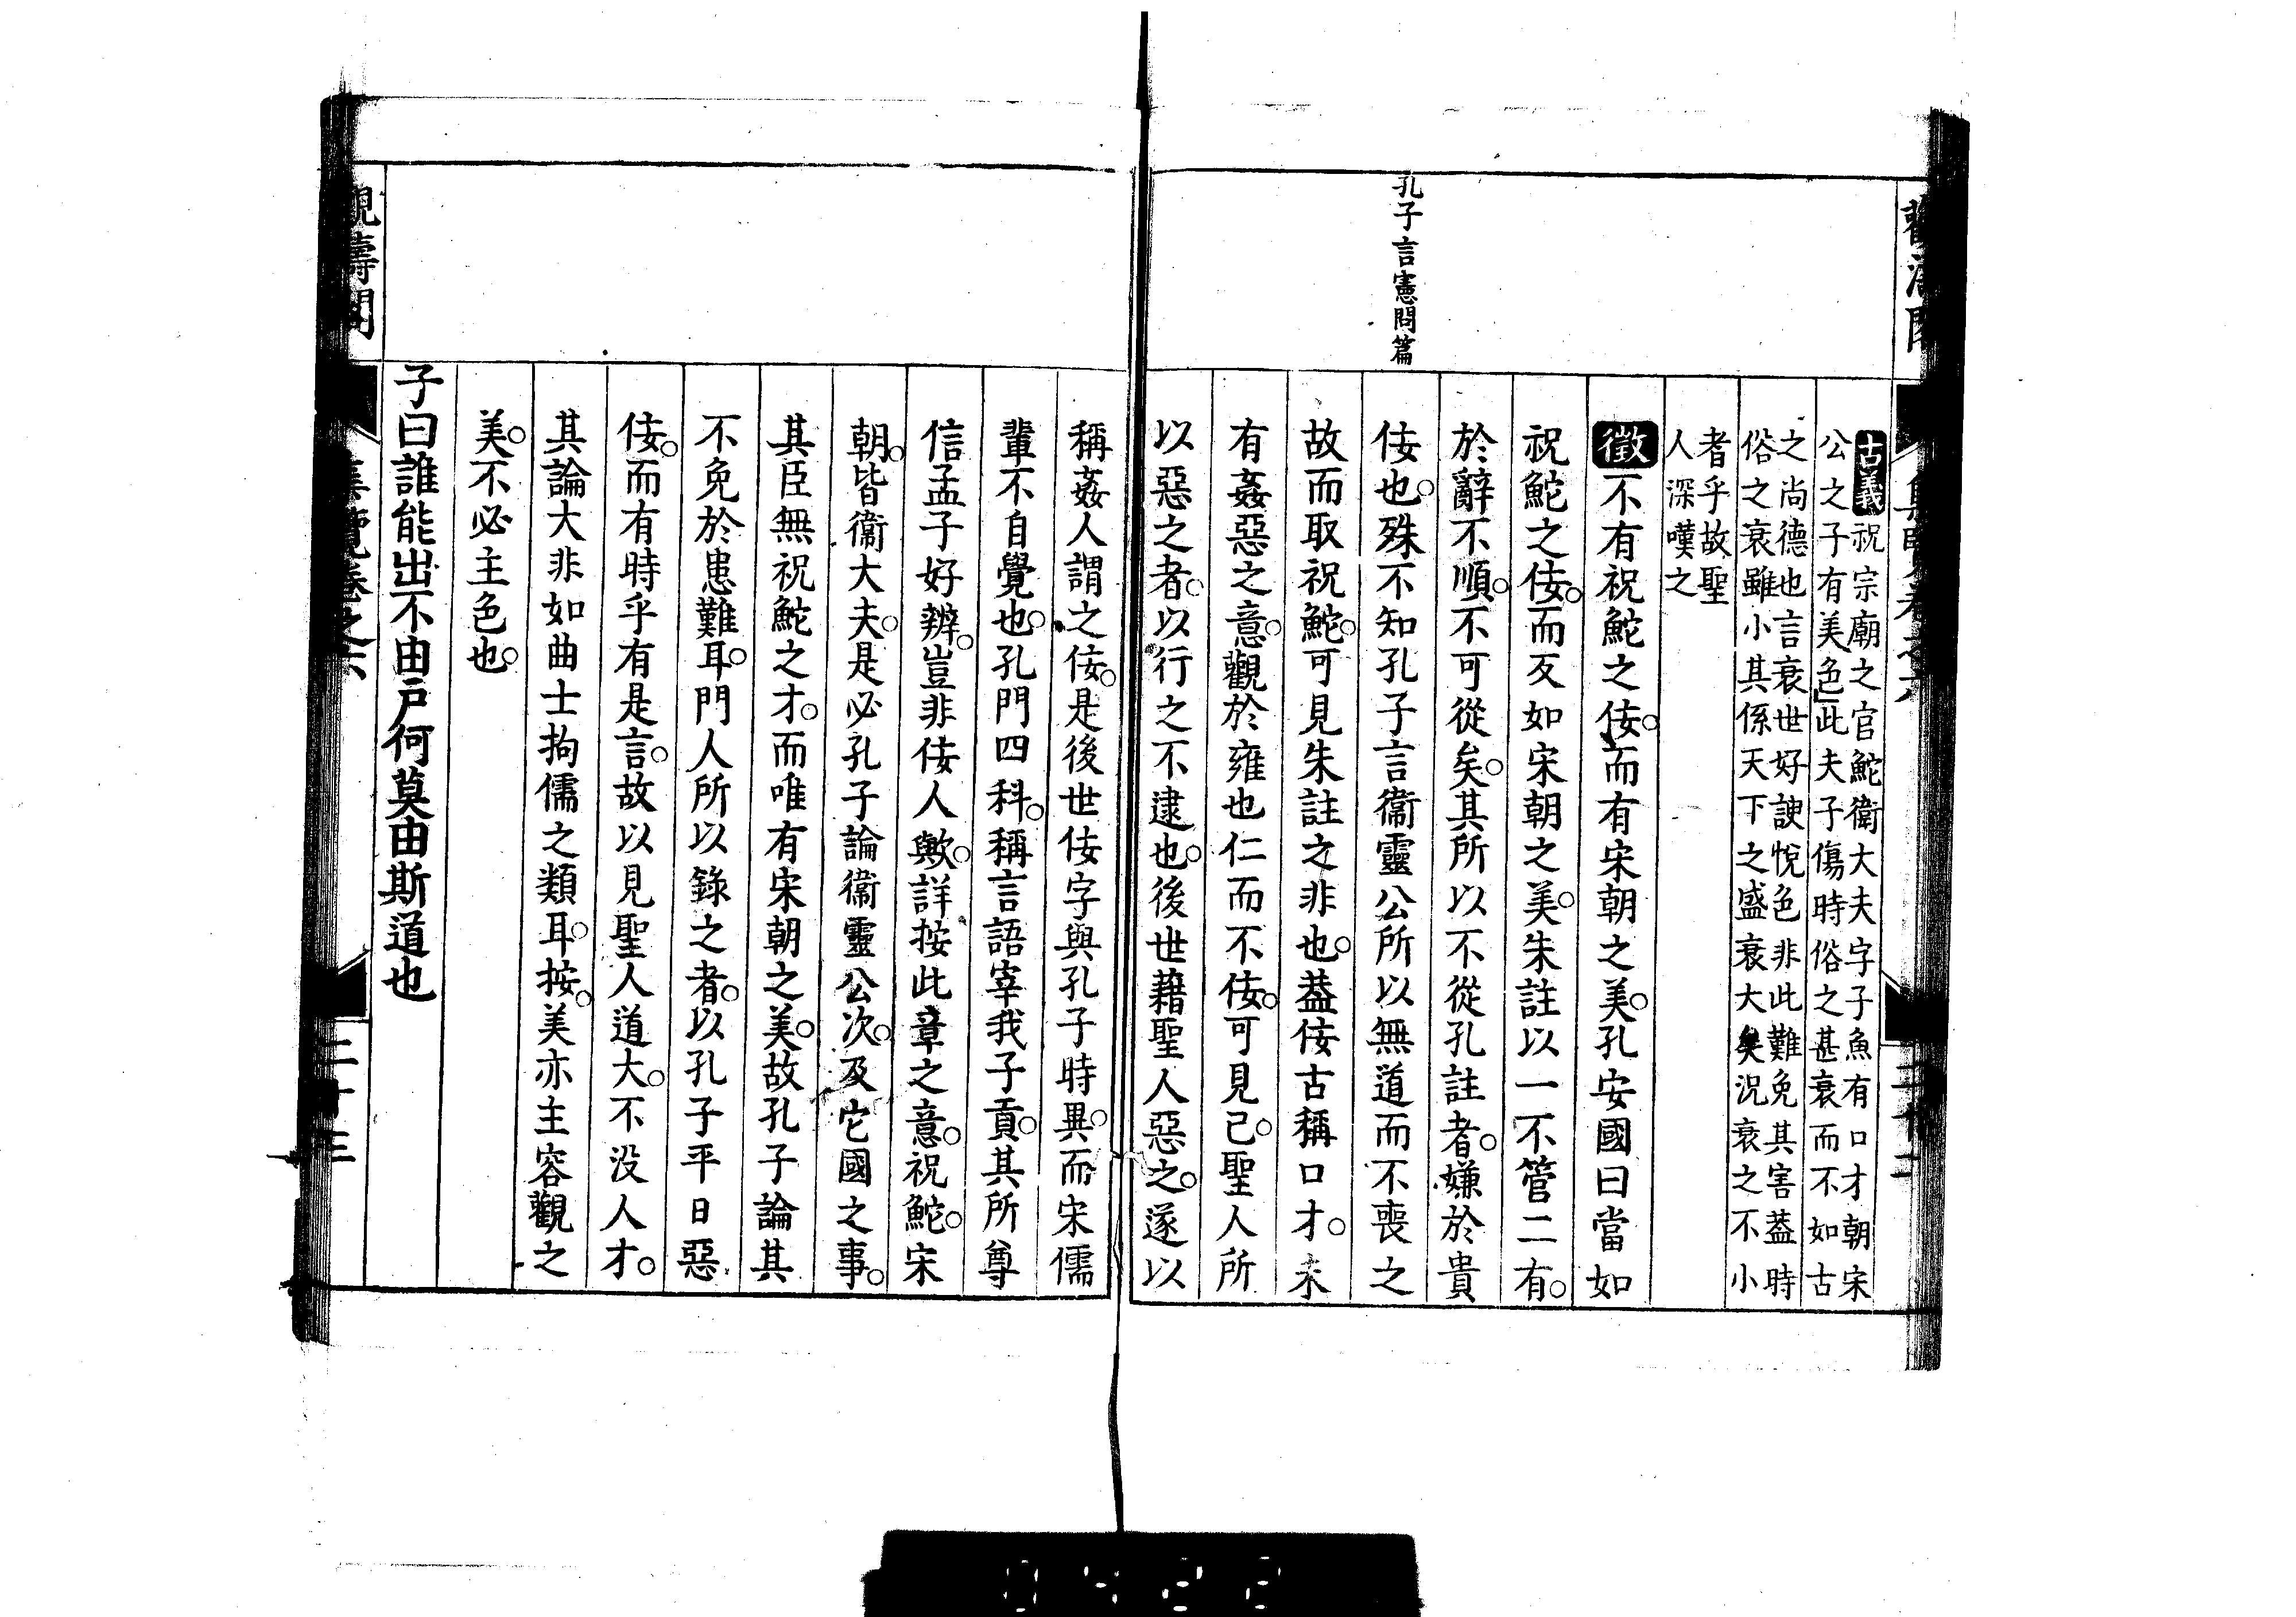 孔子言憲問篇
古義祝宗廟之官鮀衛大夫字子魚有口才朝宋
公之子有美色」此夫子傷時俗之甚衰而不如古
之尚德也言衰世好諛悅色非此難免其害葢時
俗之衰雖小其係天下之盛衰大矣況衰之不小
者乎故聖
人深嘆之
徵不有祝鮀之佞。而有宋朝之美。孔安國曰當如
祝鮀之佞。而反如宋朝之美。朱註以一不管二有。
於辭不順。不可從矣。其所以不從孔註者。嫌於貴
佞也。殊不知孔子言衞靈公所以無道而不喪之
故而取祝鮀。可見朱註之非也。葢佞古稱口才。未
有姦惡之意。觀於雍也仁而不佞。可見已。聖人所
以惡之者。以行之不逮也。後世藉聖人惡之。遂以
稱姦人謂之佞。是後世佞字與孔子時異。而宋儒
輩不自覺也。孔門四科。稱言語宰我子貢。其所尊
信孟子好辨。豈非佞人歟。詳按此章之意。祝鮀。宋
朝。皆衞大夫。是必孔子論衞靈公次。及它國之事。
其臣無祝鮀之才。而唯有宋朝之美。故孔子論其
不免於患難耳。門人所以錄之者。以孔子平日惡
佞。而有時乎有是言。故以見聖人道大。不没人才。
其論大非如曲士拘儒之類耳。按。美亦主容觀之
美。不必主色也。
子曰誰能出不由戶何莫由斯道也